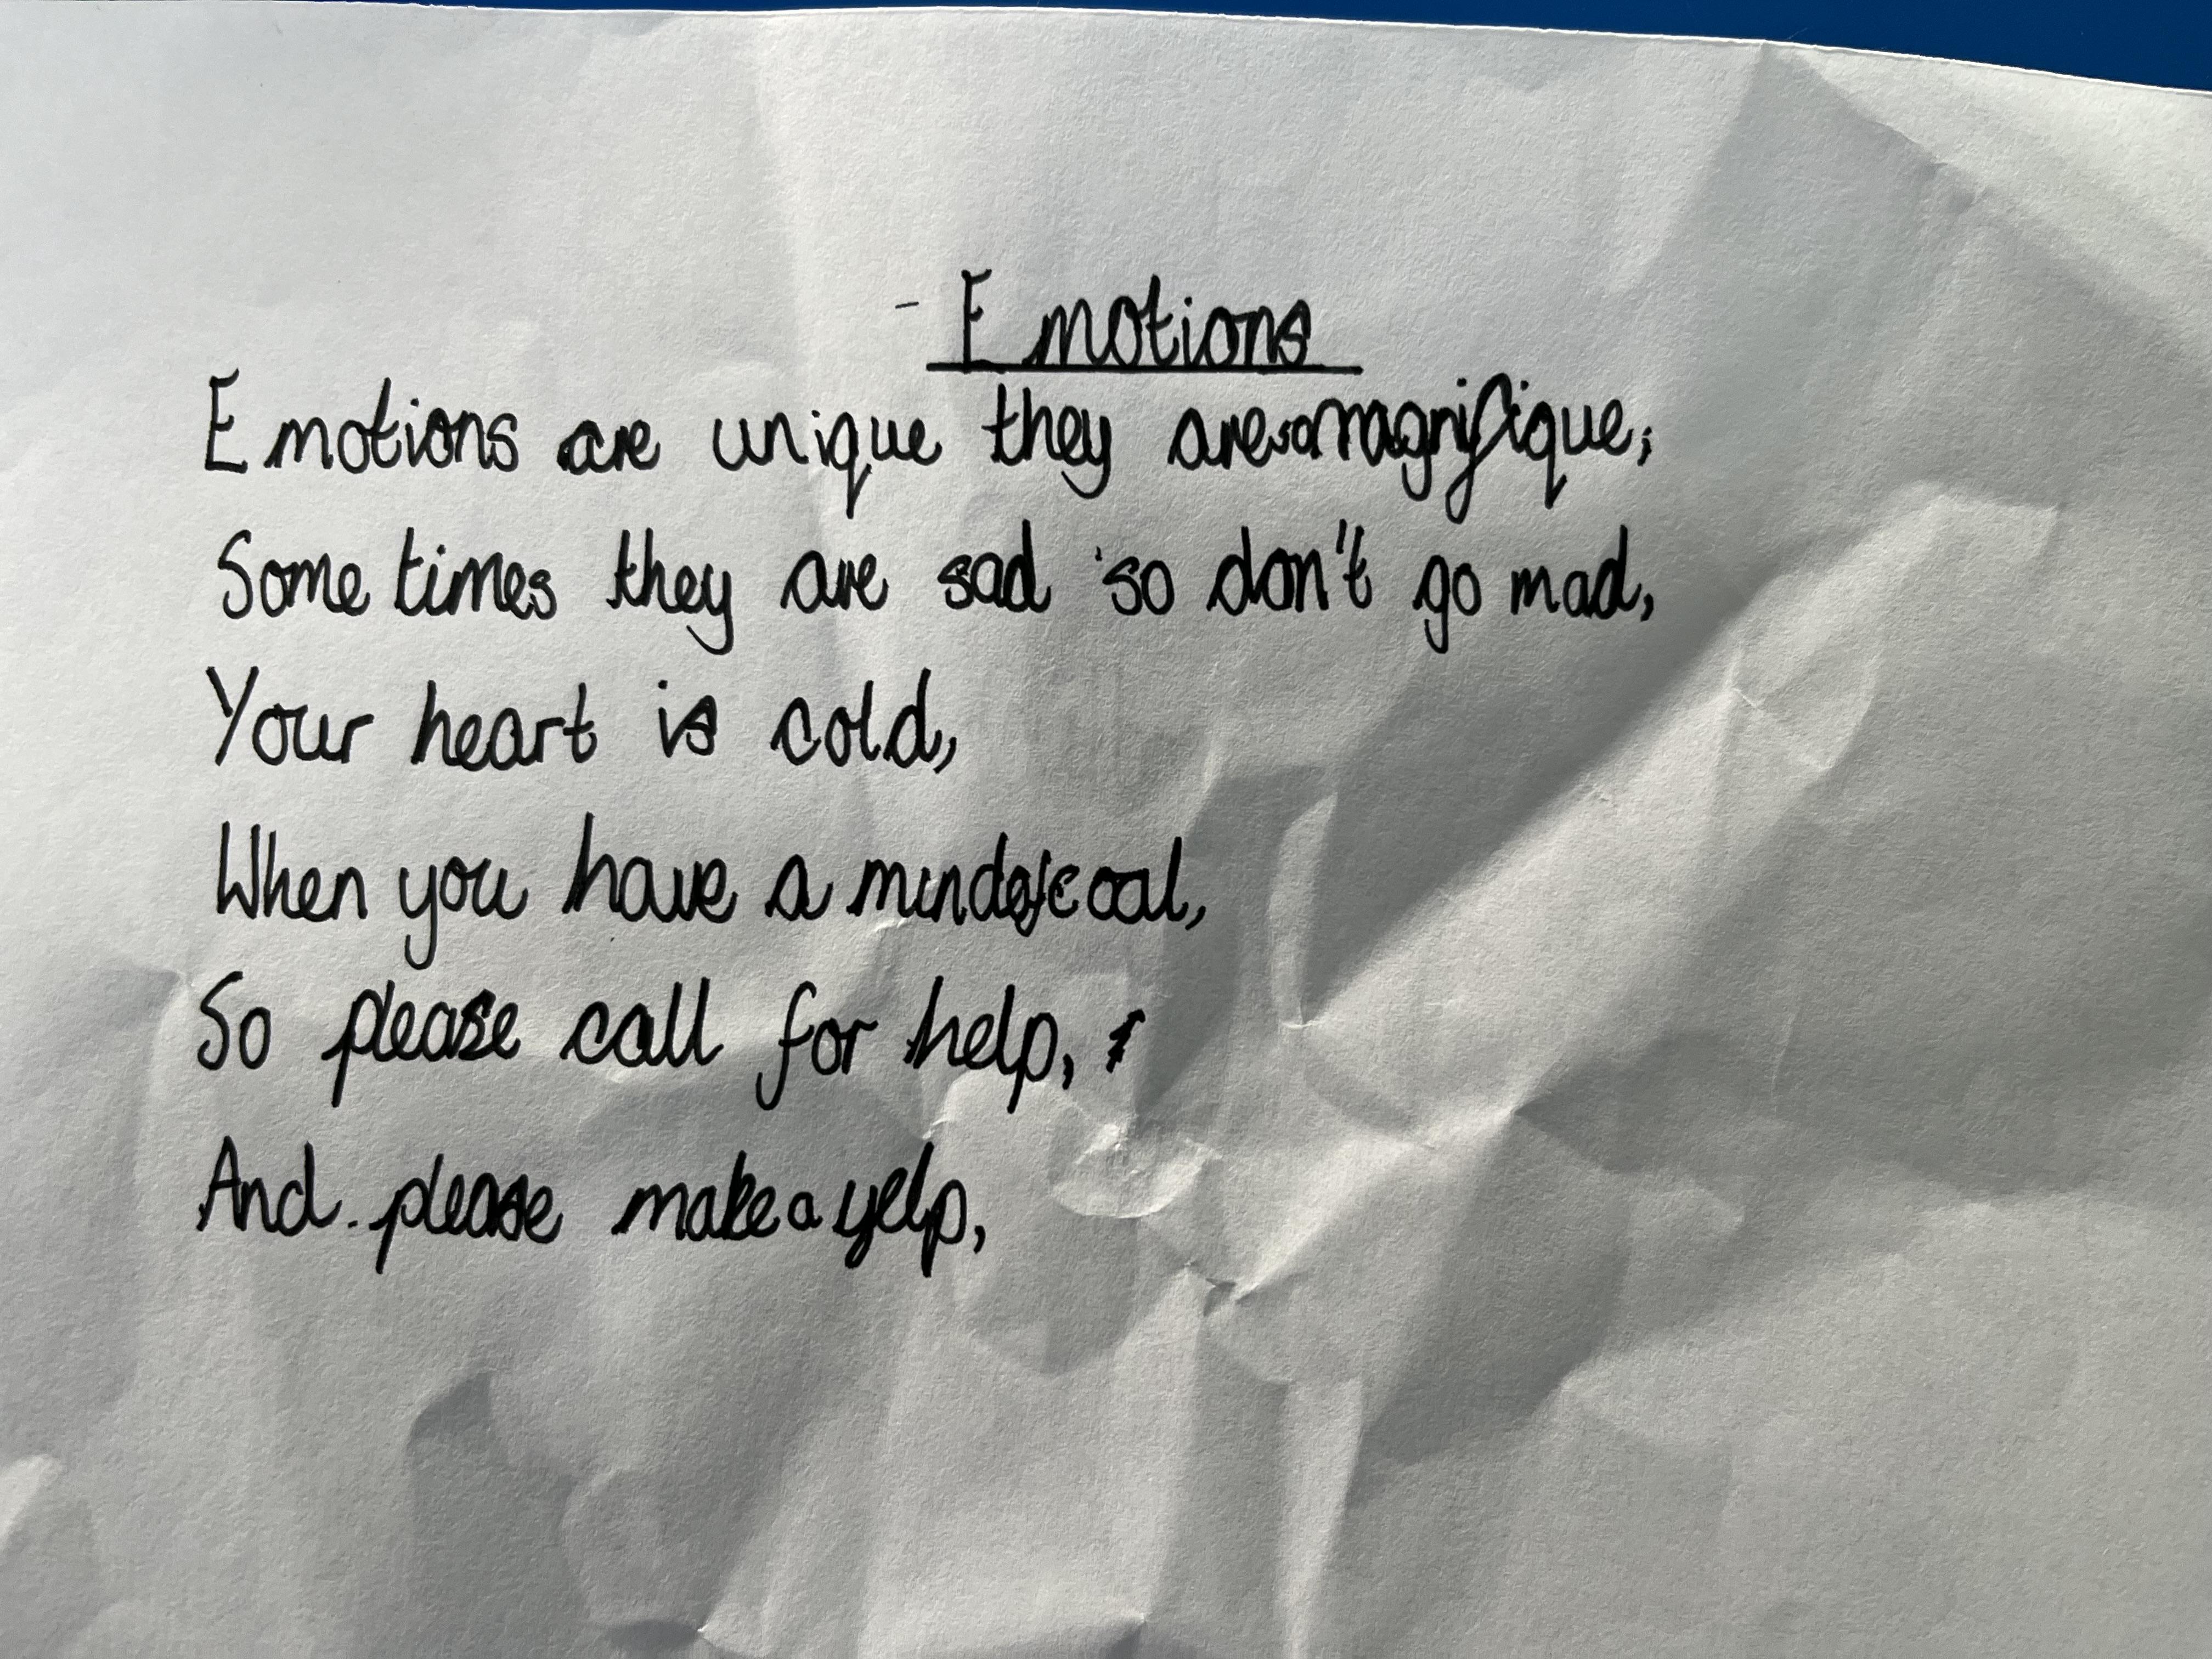 Emotions
Emotions are unique they are so magnifique,
Some times they are sad so don't go mad,
Your heart is cold,
When you have a mind of coal,
So please call for help,
And please make a yelp,